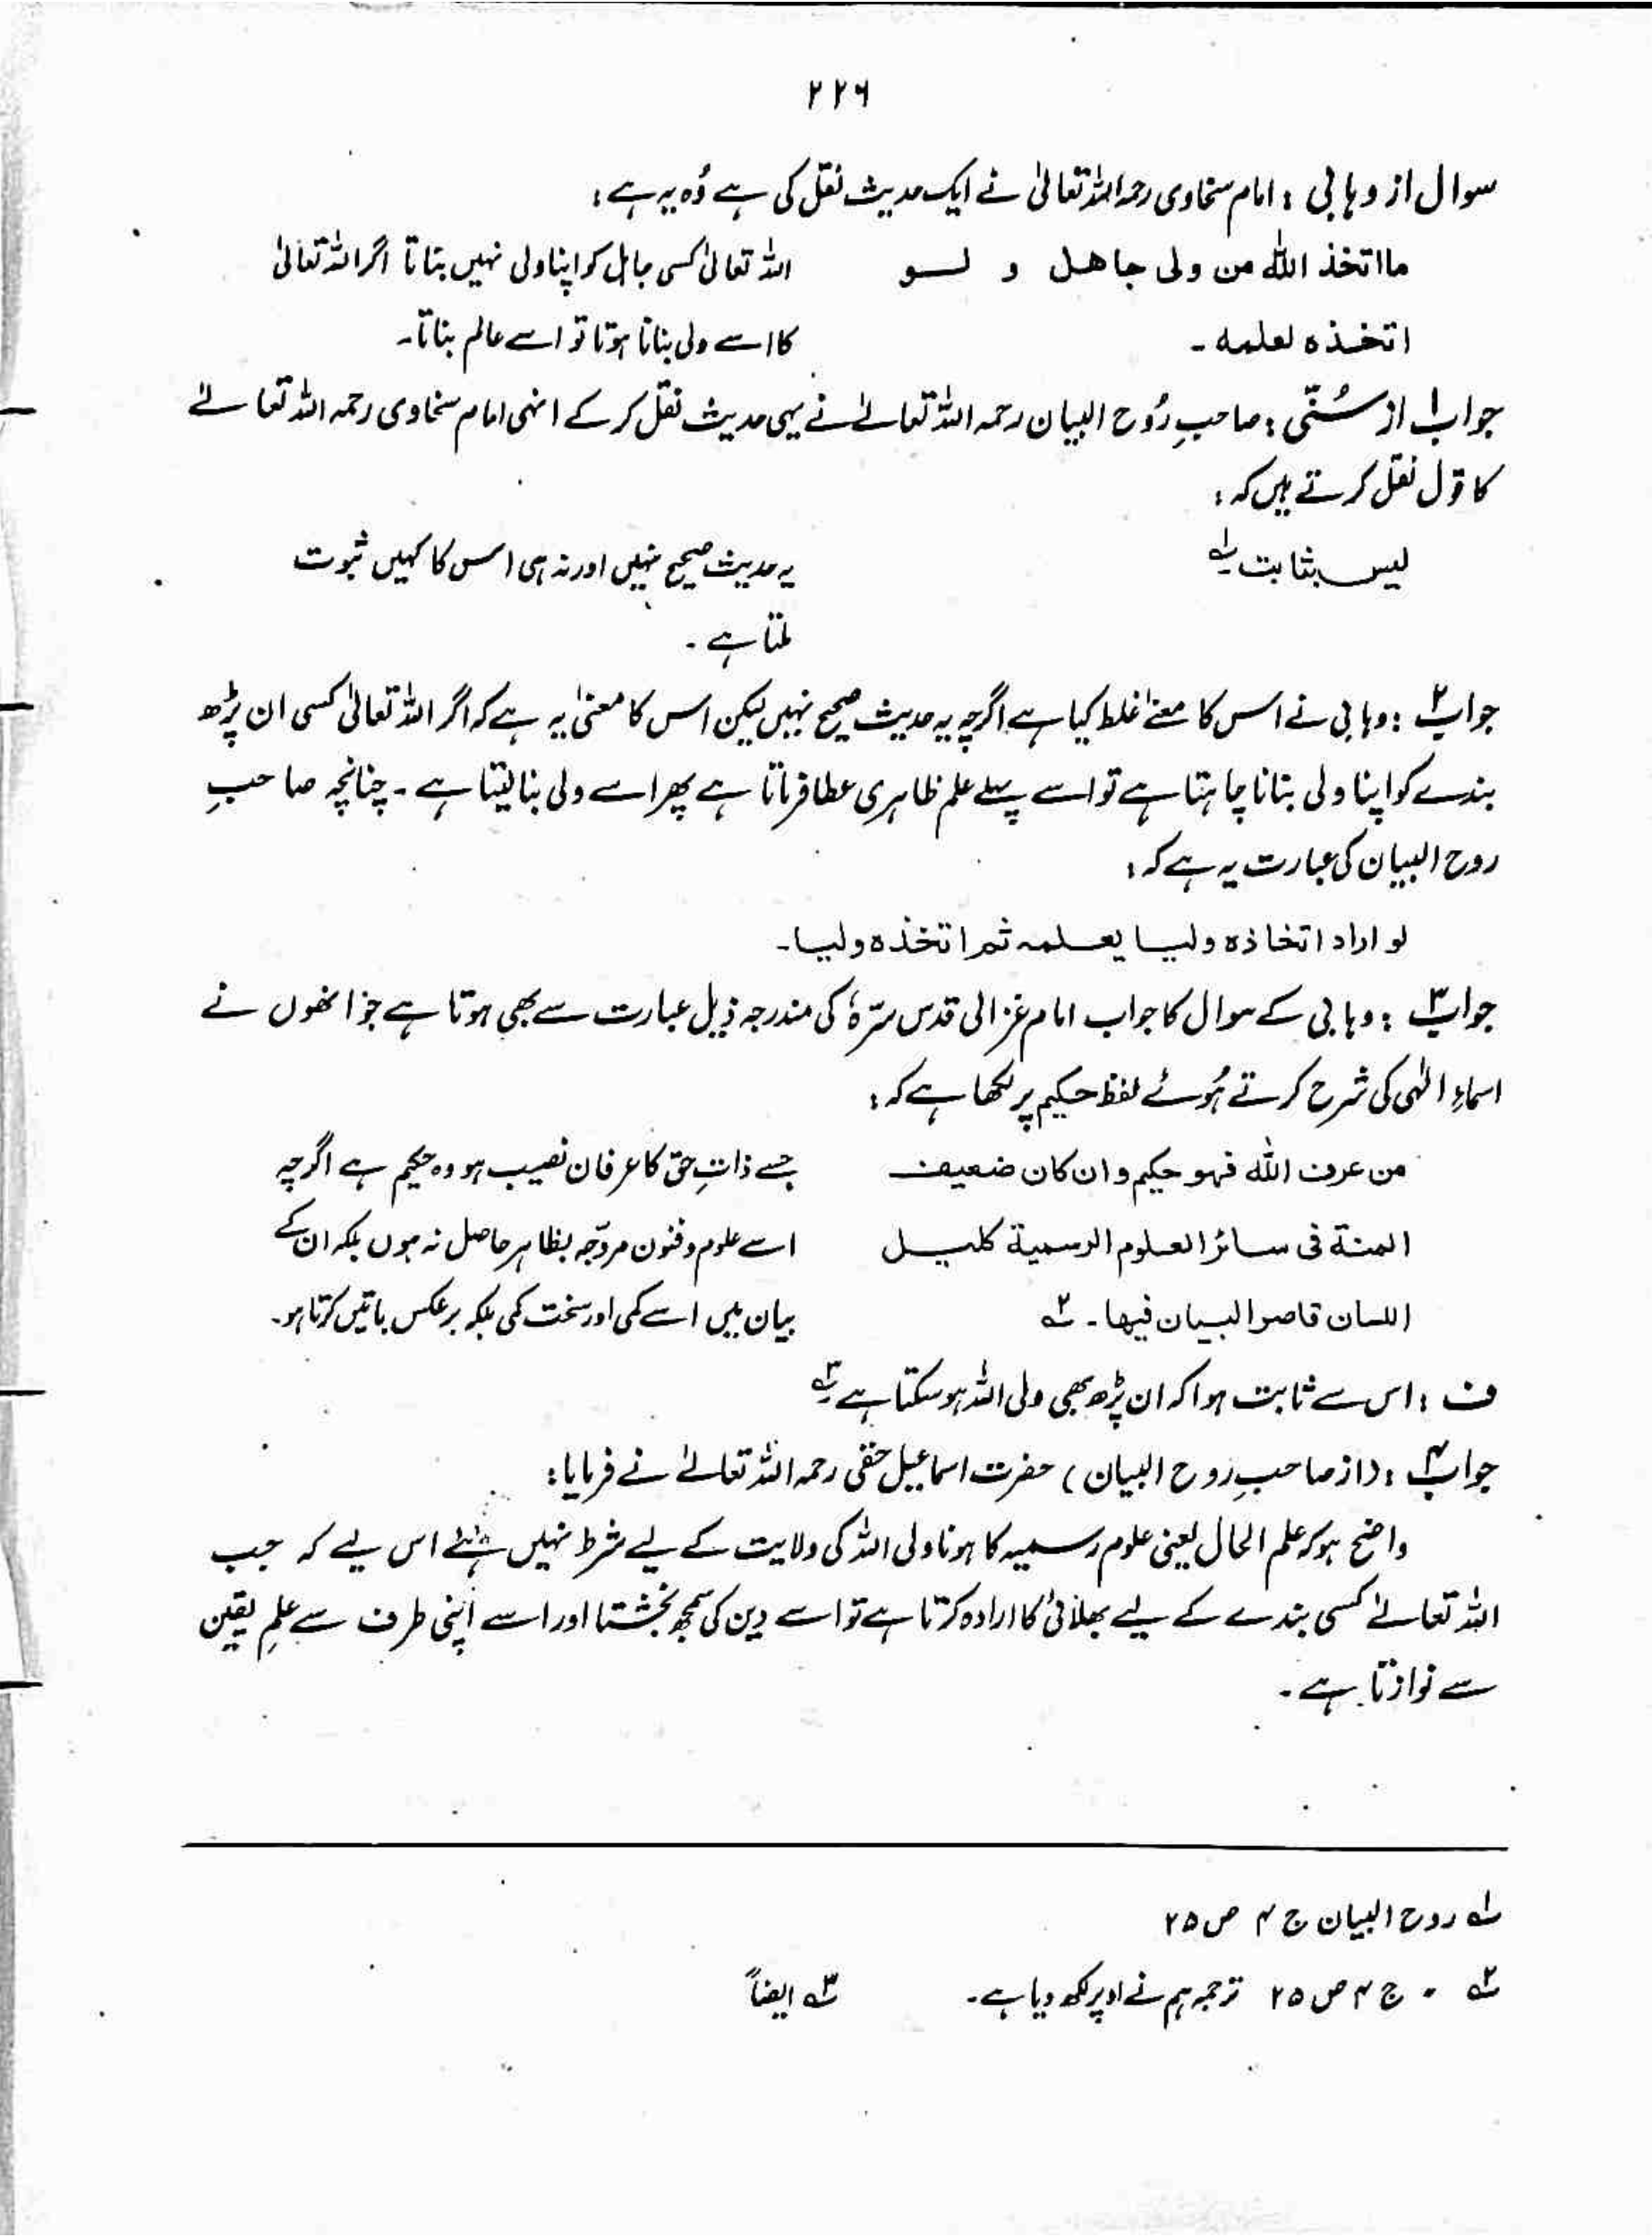 ۲۲۶
سوال از وہابی : امام سخاوی رحمہ اللہ تعالیٰ نے ایک حدیث نقل کی ہے وُہ یہ ہے :
ما اتخذ الله من ولی جاهل و لو
اتخذہ لعلمه ۔
اللہ تعالیٰ کسی جاہل کو اپنا ولی نہیں بناتا اگر اللہ تعالیٰ
کا اسے ولی بنانا ہوتا تو اسے عالم بناتا۔
جواب۱ از سُنّی : صاحبِ رُوح البیان رحمہ اللہ تعالےٰ نے یہی حدیث نقل کر کے انہی امام سخاوی رحمہ اللہ تعالےٰ
کا قول نقل کرتے ہیں کہ :
لیس بثابت ۱؎
یہ حدیث صحیح نہیں اور نہ ہی اس کا کہیں ثبوت
ملتا ہے ۔
جواب۲ : وہابی نے اس کا معنےٰ غلط کیا ہے اگرچہ یہ حدیث صحیح نہیں لیکن اس کا معنیٰ یہ ہے کہ اگر اللہ تعالیٰ کسی ان پڑھ
بندے کو اپنا ولی بنانا چاہتا ہے تو اسے پہلے علم ظاہری عطا فرماتا ہے پھر اسے ولی بنا لیتا ہے ۔ چنانچہ صاحبِ
روح البیان کی عبارت یہ ہے کہ :
لو اراد اتخاذہ ولیا یعلمہ ثم اتخذہ ولیا۔
جواب۳ : وہابی کے سوال کا جواب امام غزالی قدس سرّہٗ کی مندرجہ ذیل عبارت سے بھی ہوتا ہے جو انھوں نے
اسماءِ الٰہی کی شرح کرتے ہُوئے لفظ حکیم پر لکھا ہے کہ :
من عرف الله فهو حکیم و ان کان ضعیف
المنة فی سائر العلوم الرسمیة کلیل
اللسان قاصر البیان فیها ۔ ۲؎
جسے ذاتِ حق کا عرفان نصیب ہو وہ حکیم ہے اگرچہ
اسے علوم و فنون مروّجہ بظاہر حاصل نہ ہوں بلکہ ان کے
بیان میں اسے کمی اور سخت کمی بلکہ برعکس باتیں کرتا ہو۔
ف : اس سے ثابت ہوا کہ ان پڑھ بھی ولی اللہ ہو سکتا ہے ۳؎
جواب۴ : (از صاحبِ روح البیان) حضرت اسماعیل حقی رحمہ اللہ تعالےٰ نے فرمایا :
واضح ہو کہ علم الحال یعنی علوم رسمیہ کا ہونا ولی اللہ کی ولایت کے لیے شرط نہیں اس لیے کہ جب
اللہ تعالےٰ کسی بندے کے لیے بھلائی کا ارادہ کرتا ہے تو اسے دین کی سمجھ بخشتا اور اسے اپنی طرف سے علمِ یقین
سے نوازتا ہے ۔
۱؎ روح البیان ج ۴ ص ۲۵
۲؎ ״ ج ۴ ص ۲۵ ترجمہ ہم نے اوپر لکھ دیا ہے ۔ ۳؎ ایضاً